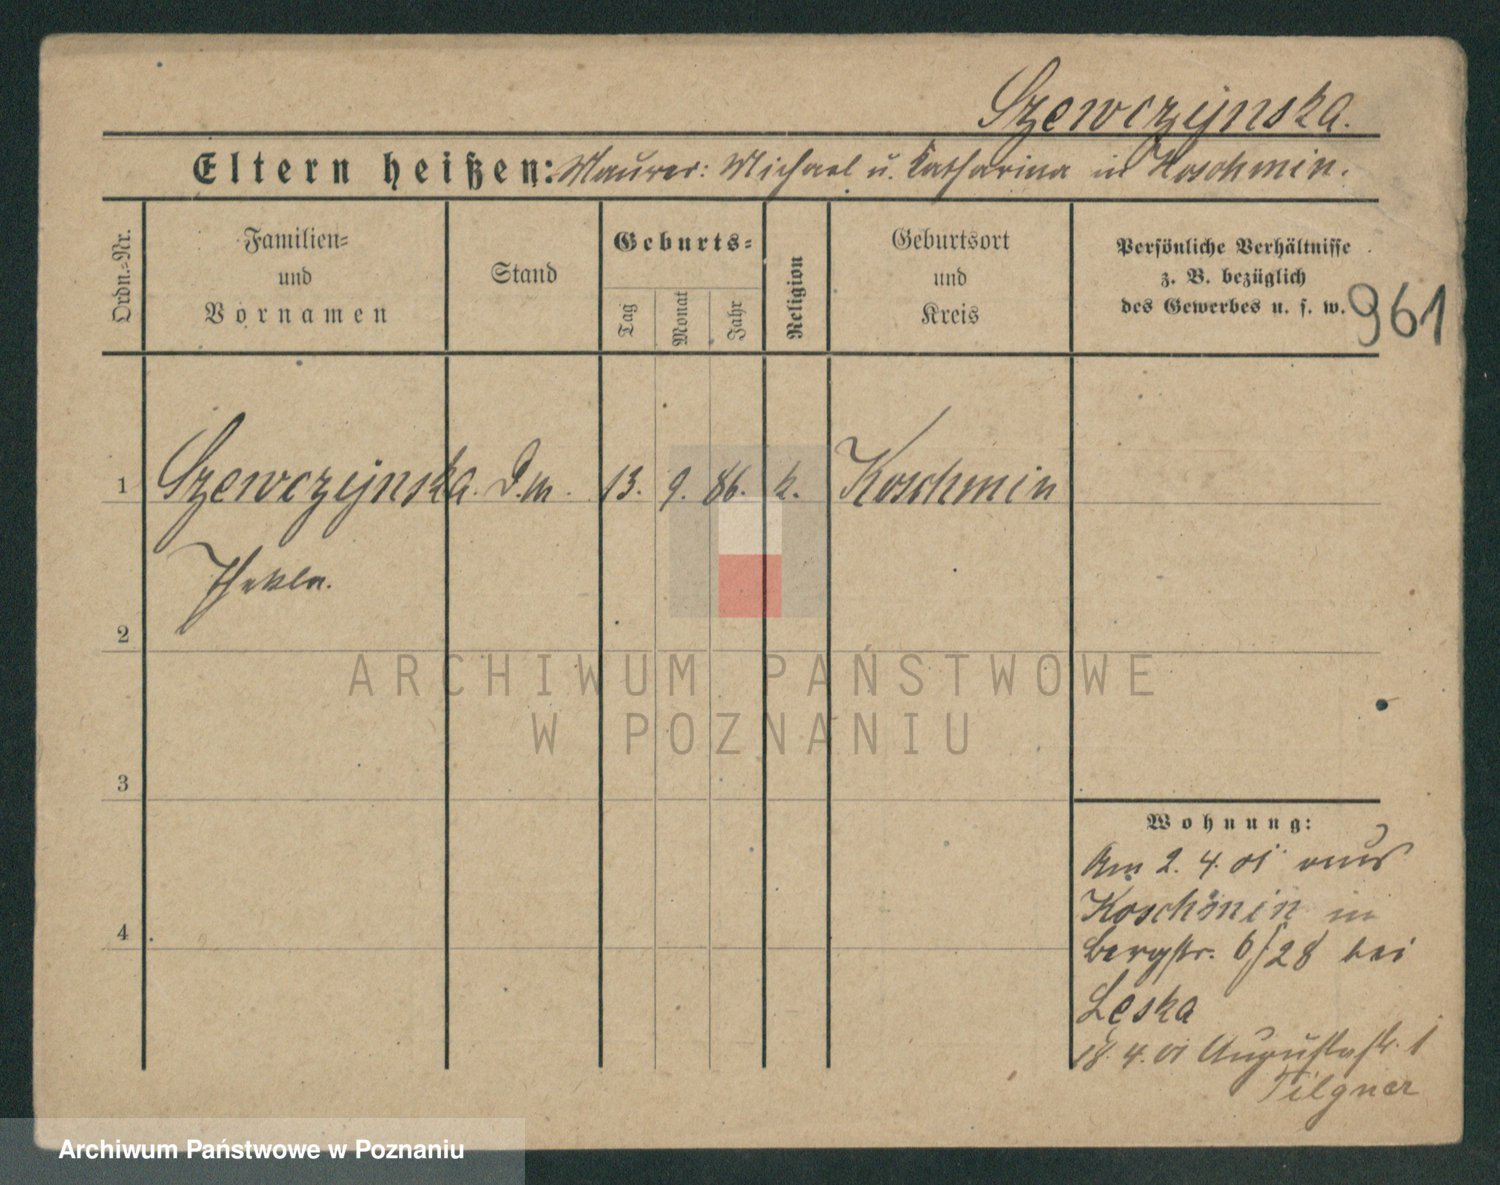 Szewczynska.
Eltern heißen: Maurer: Michael u. Katharina in Koschmin.
Ordn.-Nr.
Familien-
und
Vornamen
Stand
Geburts-
Tag
Monat
Jahr
Religion
Geburtsort
und
Kreis
Persönliche Verhältnisse
z. B. bezüglich
des Gewerbes u. s. w.
961
1 Szewczynska D.m. 13. 9. 86. k. Koschmin
Thekla.
2
3
4
Wohnung:
Am 2. 4. 01 aus
Koschmin in
Bergstr. 6/28 bei
Leska
18. 4. 01 Augustastr. 1
Tilgner
ARCHIWUM PAŃSTWOWE
W POZNANIU
Archiwum Państwowe w Poznaniu